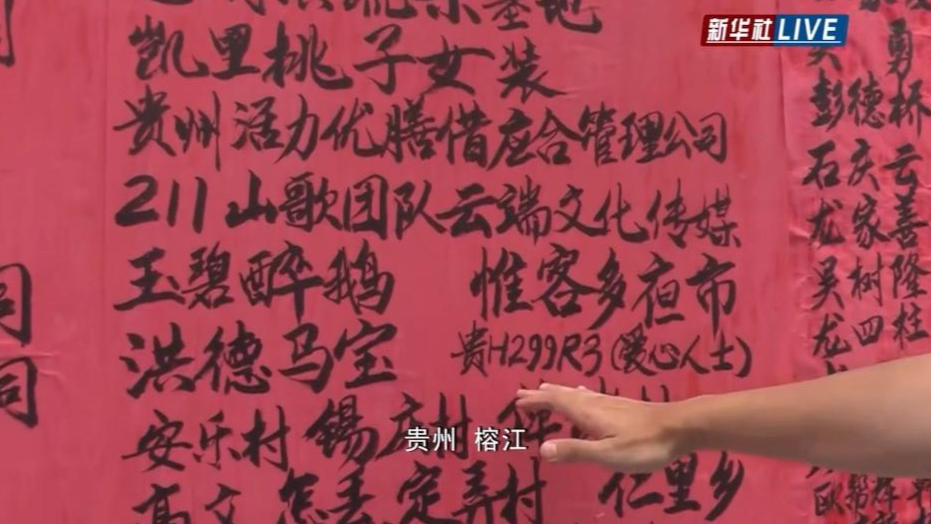 新华社 LIVE
凯里桃子女装
贵州活力优膳借应合管理公司
211山歌团队云端文化传媒
玉碧醉鹅 惟客多夜市
洪德马宝 贵H299R3(爱心人士)
安乐村 锡庄村
怎丢 定弄村 仁里乡
贵州 榕江
勇
彭德桥
石庆云
龙家善
吴树隆
龙四柱
同
同